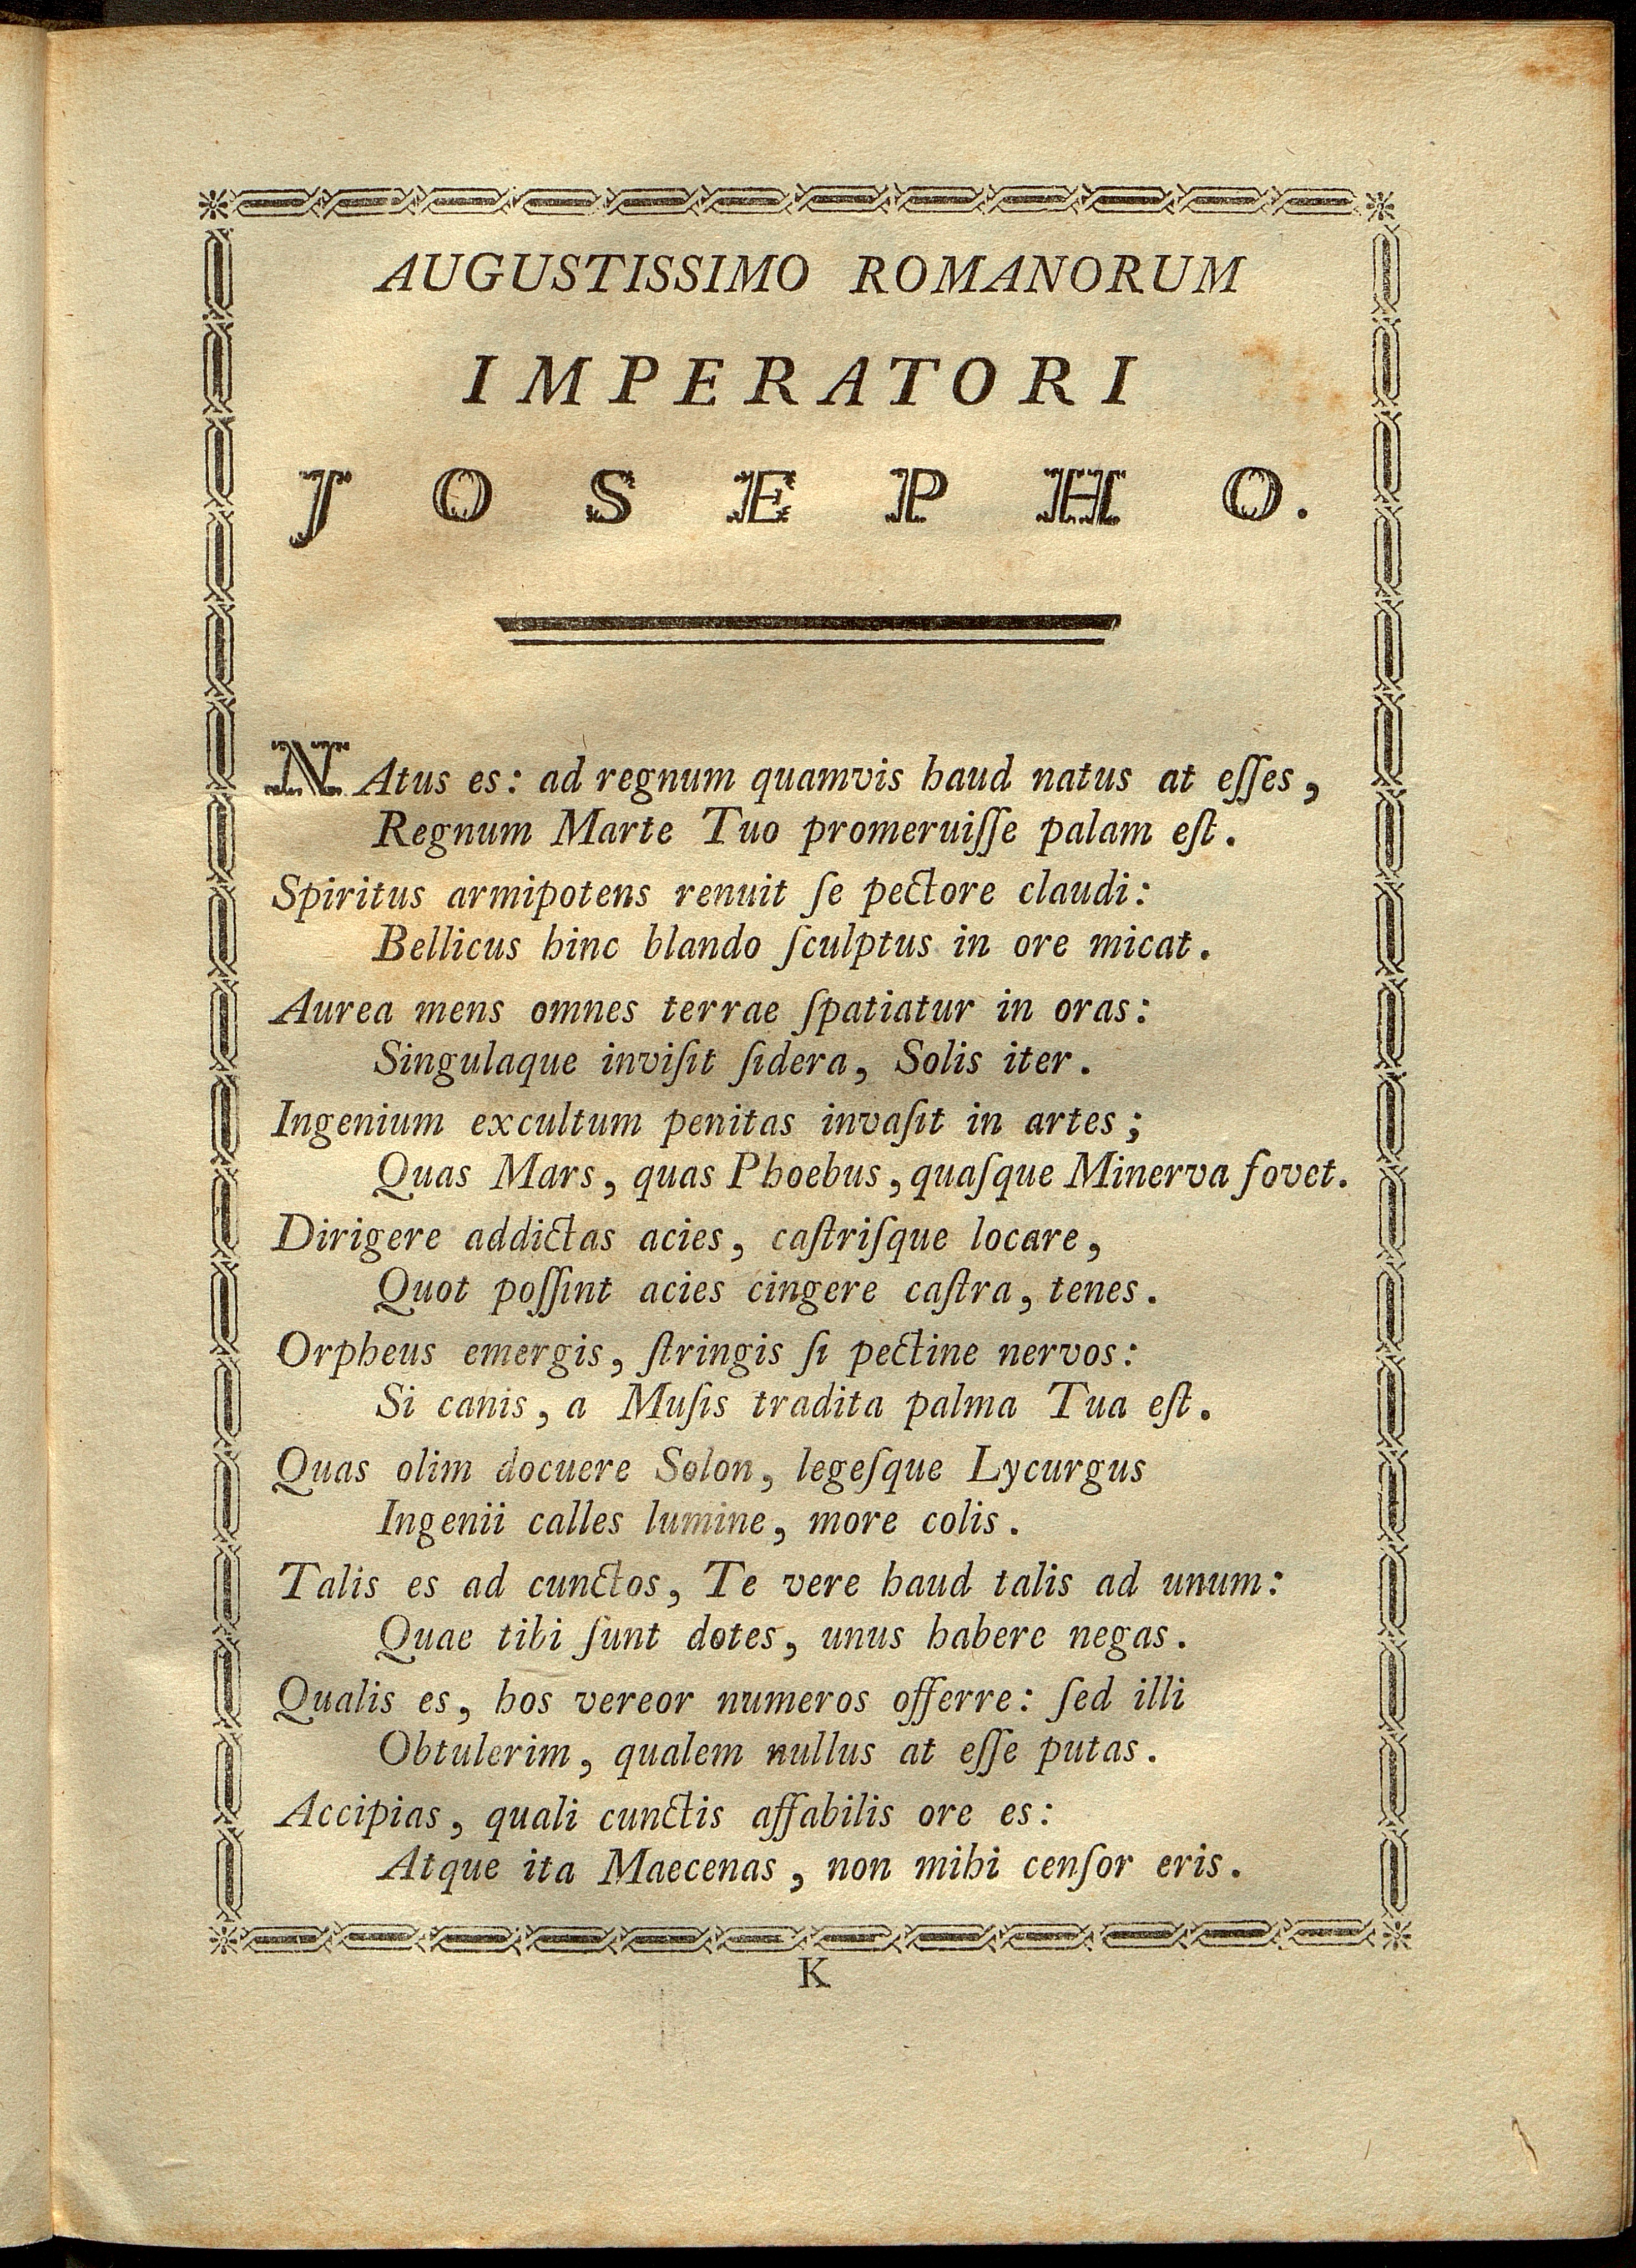 AUGUSTISSIMO ROMANORUM
IMPERATORI
JOSEPHO.
NAtus es: ad regnum quamvis haud natus at eſſes,
Regnum Marte Tuo promeruiſſe palam eſt.
Spiritus armipotens renuit ſe pectore claudi:
Bellicus hinc blando ſculptus in ore micat.
Aurea mens omnes terrae ſpatiatur in oras:
Singulaque inviſit ſidera, Solis iter.
Ingenium excultum penitas invaſit in artes;
Quas Mars, quas Phoebus, quaſque Minerva fovet.
Dirigere addictas acies, caſtriſque locare,
Quot poſſint acies cingere caſtra, tenes.
Orpheus emergis, ſtringis ſi pectine nervos:
Si canis, a Muſis tradita palma Tua eſt.
Quas olim docuere Solon, legeſque Lycurgus
Ingenii calles lumine, more colis.
Talis es ad cunctos, Te vere haud talis ad unum:
Quae tibi ſunt dotes, unus habere negas.
Qualis es, hos vereor numeros offerre: ſed illi
Obtulerim, qualem nullus at eſſe putas.
Accipias, quali cunctis affabilis ore es:
Atque ita Maecenas, non mihi cenſor eris.
K